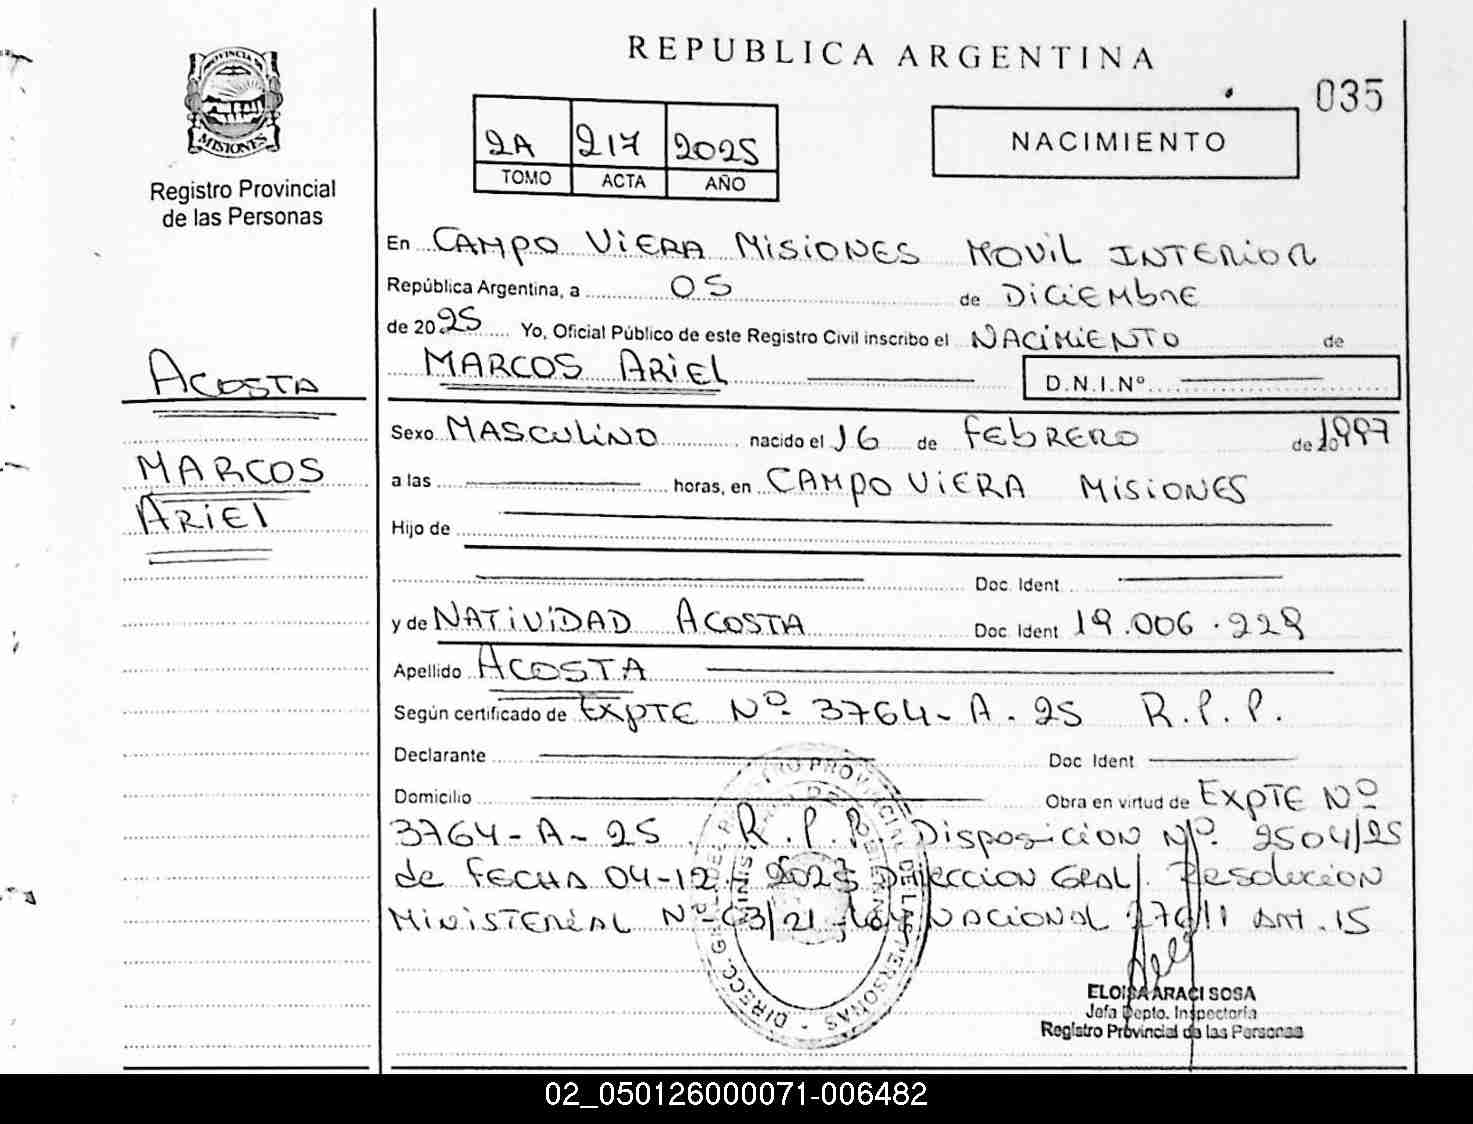 REPUBLICA ARGENTINA
035
PROVINCIA DE
MISIONES
Registro Provincial
de las Personas
2A 217 2025
TOMO ACTA AÑO
NACIMIENTO
En CAMPO VIERA MISIONES MOVIL INTERIOR
República Argentina, a 05 de DICIEMBRE
de 2025 Yo, Oficial Público de este Registro Civil inscribo el NACIMIENTO de
MARCOS ARIEL D.N.I.Nº
ACOSTA
MARCOS
ARIEL
Sexo MASCULINO nacido el 16 de FEBRERO de 1997
a las horas, en CAMPO VIERA MISIONES
Hijo de
Doc. Ident
y de NATIVIDAD ACOSTA Doc. Ident 19.006.229
Apellido ACOSTA
Según certificado de EXPTE Nº 3764-A-25 R.P.P.
Declarante Doc Ident
Domicilio Obra en virtud de EXPTE Nº
3764-A-25 R.P.P. Disposicion Nº 2504/25
de FECHA 04-12-2025 Direccion GRAL. Resolucion
MINISTERIAL Nº 03/21 Ley NACIONAL Art. 15
ELOISA ARACI SOSA
Jefa Depto. Inspectoría
Registro Provincial de las Personas
02_050126000071-006482